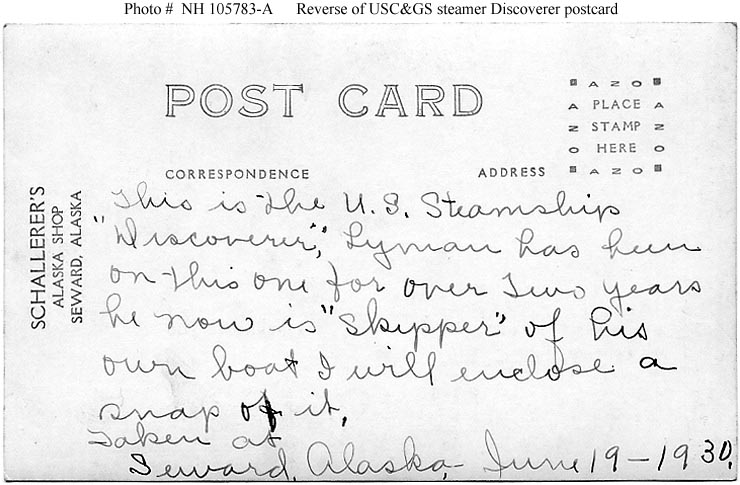 Photo # NH 105783-A Reverse of USC&GS steamer Discoverer postcard
POST CARD
AZO
A PLACE A
Z STAMP Z
O HERE O
AZO
CORRESPONDENCE ADDRESS
SCHALLERER'S
ALASKA SHOP
SEWARD, ALASKA
This is the U.S. Steamship
"Discoverer", Lyman has been
on this one for over Two years
he now is "Skipper" of his
own boat I will enclose a
snap of it,
Taken at
Seward, Alaska, June 19-1930.